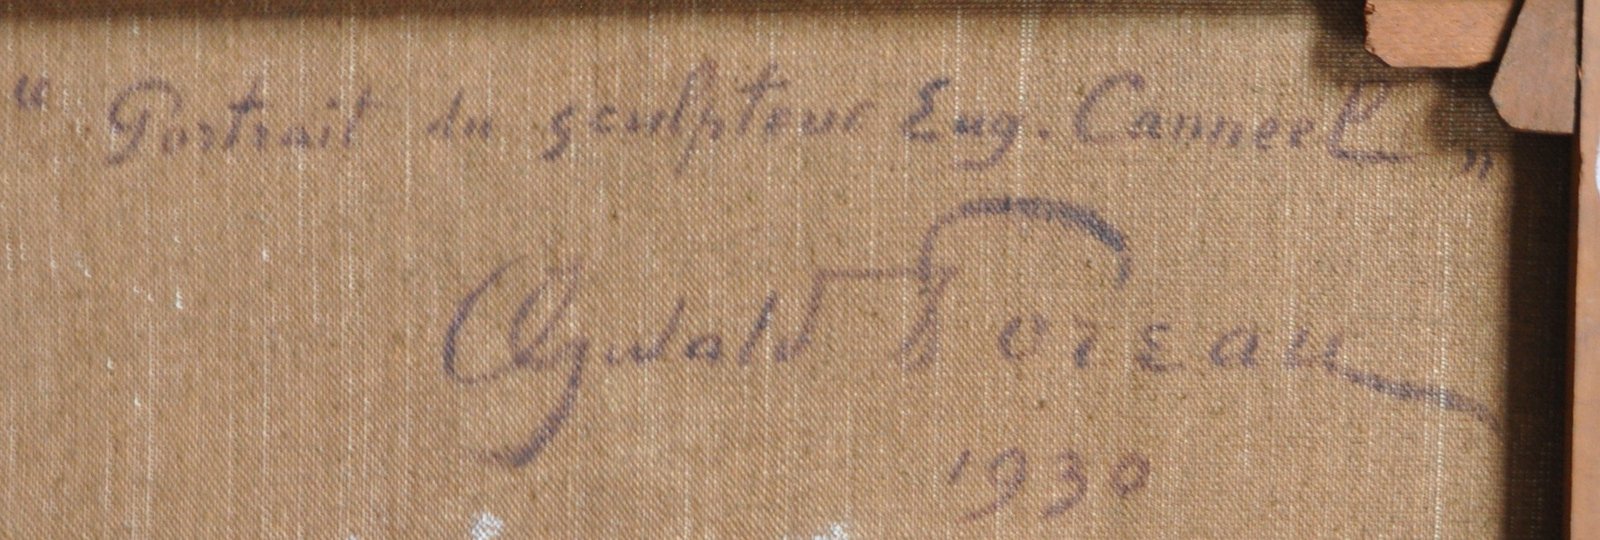 "Portrait du sculpteur Eug. Canneel"
Oswald Poreau
1930